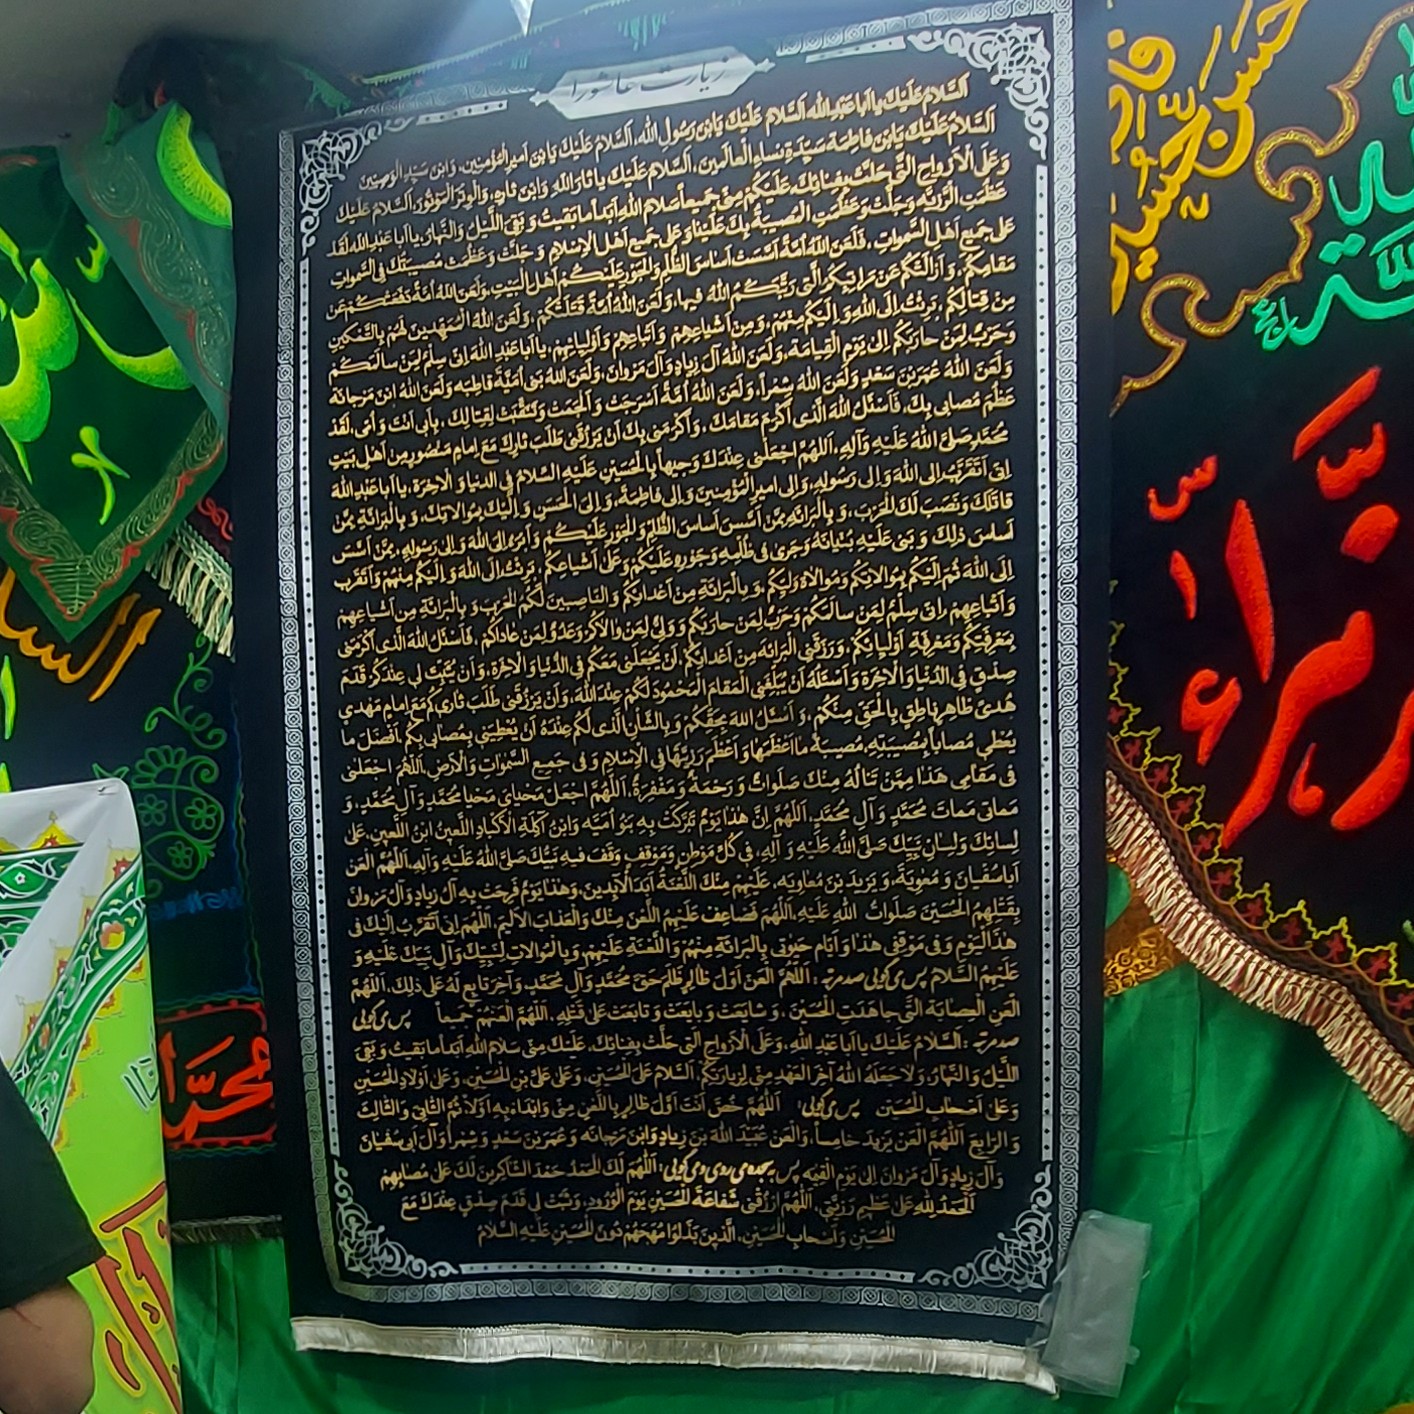 زیارت عاشورا
اَلسَّلامُ عَلَیْكَ یا اَبا عَبْدِاللهِ اَلسَّلامُ عَلَیْكَ یَابْنَ رَسُولِ اللهِ، اَلسَّلامُ عَلَیْكَ یَا بْنَ اَمیرِ الْمُؤْمِنینَ، وَابْنَ سَیِّدِ الْوَصِیّینَ
اَلسَّلامُ عَلَیْكَ یَابْنَ فاطِمَةَ سَیِّدَةِ نِساءِ الْعالَمینَ، اَلسَّلامُ عَلَیْكَ یا ثارَ اللهِ وَابْنَ ثارِهِ، وَالْوِتْرَ الْمَوْتُورَ، اَلسَّلامُ عَلَیْكَ
وَ عَلَی الْاَرْواحِ الَّتی حَلَّتْ بِفِنائِكَ عَلَیْكُمْ مِنّی جَمیعاً سَلامُ اللهِ اَبَداً ما بَقیتُ وَ بَقِیَ اللَّیْلُ وَ النَّهارُ، یا اَبا عَبْدِ اللهِ لَقَدْ
عَظُمَتِ الرَّزِیَّهُ وَ جَلَّتْ وَ عَظُمَتِ الْمُصیبَةُ بِكَ عَلَیْنا وَ عَلی جَمیعِ اَهْلِ الْاِسْلامِ وَ جَلَّتْ وَ عَظُمَتْ مُصیبَتُكَ فِی السَّمواتِ
عَلی جَمیعِ اَهْلِ السَّمواتِ، فَلَعَنَ اللهُ اُمَّةً اَسَّسَتْ اَساسَ الظُّلْمِ وَ الْجَوْرِ عَلَیْكُمْ اَهْلَ الْبَیْتِ، وَ لَعَنَ اللهُ اُمَّةً دَفَعَتْكُمْ عَنْ
مَقامِكُمْ، وَ اَزالَتْكُمْ عَنْ مَراتِبِكُمُ الَّتی رَتَّبَكُمُ اللهُ فیها، وَ لَعَنَ اللهُ اُمَّةً قَتَلَتْكُمْ، وَ لَعَنَ اللهُ الْمُمَهِّدینَ لَهُمْ بِالتَّمْكینِ
مِنْ قِتالِكُمْ، بَرِئْتُ اِلَی اللهِ وَ اِلَیْكُمْ مِنْهُمْ، وَ مِنْ اَشْیاعِهِمْ وَ اَتْباعِهِمْ وَ اَوْلِیائِهِمْ، یا اَبا عَبْدِ اللهِ اِنّی سِلْمٌ لِمَنْ سالَمَكُمْ
وَ حَرْبٌ لِمَنْ حارَبَكُمْ اِلی یَوْمِ الْقِیامَةِ، وَ لَعَنَ اللهُ آلَ زِیادٍ وَ آلَ مَرْوانَ، وَ لَعَنَ اللهُ بَنی اُمَیَّةَ قاطِبَه وَ لَعَنَ اللهُ ابْنَ مَرْجانَةَ
وَ لَعَنَ اللهُ عُمَرَ بْنَ سَعْدٍ وَ لَعَنَ اللهُ شِمْراً، وَ لَعَنَ اللهُ اُمَّةً اَسْرَجَتْ وَ اَلْجَمَتْ وَ تَنَقَّبَتْ لِقِتالِكَ، بِاَبی اَنْتَ وَ اُمّی، لَقَدْ
عَظُمَ مُصابی بِكَ، فَاَسْئَلُ اللهَ الَّذی اَكْرَمَ مَقامَكَ، وَ اَكْرَمَنی بِكَ اَنْ یَرْزُقَنی طَلَبَ ثارِكَ مَعَ اِمامٍ مَنْصُورٍ مِنْ اَهْلِ بَیْتِ
مُحَمَّدٍ صَلَّی اللهُ عَلَیْهِ وَ آلِهِ، اَللّهُمَّ اجْعَلْنی عِنْدَكَ وَجیهاً بِالْحُسَیْنِ عَلَیْهِ السَّلامُ فِی الدنیا وَ الْاخِرَةِ، یا اَبا عَبْدِ اللهِ
اِنّی اَتَقَرَّبُ اِلَی اللهِ وَ اِلی رَسُولِهِ، وَ اِلی امیرِ الْمُؤْمِنینَ وَ اِلی فاطِمَةَ، وَ اِلَی الْحَسَنِ وَ اِلَیْكَ بِمُوالاتِكَ، وَ بِالْبَرائَةِ مِمَّنْ
قاتَلَكَ وَ نَصَبَ لَكَ الْحَرْبَ، وَ بِالْبَرائَةِ مِمَّنْ اَسَّسَ اَساسَ الظُّلْمِ وَ الْجَوْرِ عَلَیْكُمْ وَ اَبْرَءُ اِلَی اللهِ وَ اِلی رَسُولِهِ، مِمَّنْ اَسَّسَ
اَساسَ ذلِكَ وَ بَنی عَلَیْهِ بُنْیانَهُ وَ جَری فی ظُلْمِهِ وَ جَوْرِهِ عَلَیْكُمْ وَ عَلی اَشْیاعِكُمْ، بَرِئْتُ اِلَی اللهِ وَ اِلَیْكُمْ مِنْهُمْ وَ اَتَقَرَّبُ
اِلَی اللهِ ثُمَّ اِلَیْكُمْ بِمُوالاتِكُمْ وَ مُوالاةِ وَلِیِّكُمْ، وَ بِالْبَرائَةِ مِنْ اَعْدائِكُمْ وَ النّاصِبینَ لَكُمُ الْحَرْبَ، وَ بِالْبَرائَةِ مِنْ اَشْیاعِهِمْ
وَ اَتْباعِهِمْ، اِنّی سِلْمٌ لِمَنْ سالَمَكُمْ وَ حَرْبٌ لِمَنْ حارَبَكُمْ وَ وَلِیٌّ لِمَنْ والاكُمْ وَ عَدُوٌّ لِمَنْ عاداكُمْ، فَاَسْئَلُ اللهَ الَّذی اَكْرَمَنی
بِمَعْرِفَتِكُمْ وَ مَعْرِفَةِ اَوْلِیائِكُمْ، وَ رَزَقَنِی الْبَرائَةَ مِنْ اَعْدائِكُمْ، اَنْ یَجْعَلَنی مَعَكُمْ فِی الدُّنْیا وَ الْاخِرَةِ، وَ اَنْ یُثَبِّتَ لی عِنْدَكُمْ قَدَمَ
صِدْقٍ فِی الدُّنْیا وَ الْاخِرَةِ وَ اَسْئَلُهُ اَنْ یُبَلِّغَنِی الْمَقامَ الْمَحْمُودَ لَكُمْ عِنْدَ اللهِ، وَ اَنْ یَرْزُقَنی طَلَبَ ثاری كُمْ مَعَ اِمامٍ مَهْدِیٍّ
هُدیً ظاهِرٍ ناطِقٍ بِالْحَقِّ مِنْكُمْ، وَ اَسْئَلُ اللهَ بِحَقِّكُمْ وَ بِالشَّاْنِ الَّذی لَكُمْ عِنْدَهُ اَنْ یُعْطِیَنی بِمُصابی بِكُمْ اَفْضَلَ ما
یُعْطی مُصاباً بِمُصیبَتِهِ، مُصیبَةً ما اَعْظَمَها وَ اَعْظَمَ رَزِیَّتَها فِی الْاِسْلامِ وَ فی جَمیعِ السَّمواتِ وَ الْاَرْضِ، اَللّهُمَّ اجْعَلْنی
فی مَقامی هَذا مِمَّنْ تَنالُهُ مِنْكَ صَلَواتٌ وَ رَحْمَةٌ وَ مَغْفِرَةٌ، اَللّهُمَّ اجْعَلْ مَحْیایَ مَحْیا مُحَمَّدٍ وَ آلِ مُحَمَّدٍ، وَ
مَماتی مَماتَ مُحَمَّدٍ وَ آلِ مُحَمَّدٍ، اَللّهُمَّ اِنَّ هذا یَوْمٌ تَبَرَّكَتْ بِهِ بَنُو اُمَیَّه وَ ابْنُ آكِلَةِ الْاَكْبادِ اللَّعینُ ابْنُ اللَّعینِ، عَلی
لِسانِكَ وَ لِسانِ نَبِیِّكَ صَلَّی اللهُ عَلَیْهِ وَ آلِهِ، فی كُلِّ مَوْطِنٍ وَ مَوْقِفٍ وَقَفَ فیهِ نَبِیُّكَ صَلَّی اللهُ عَلَیْهِ وَ آلِهِ، اَللّهُمَّ الْعَنْ
اَبا سُفْیانَ وَ مُعوِیَةَ، وَ یَزیدَ بْنَ مُعاوِیَه، عَلَیْهِمْ مِنْكَ اللَّعْنَةُ اَبَدَ الْابِدینَ، وَ هذا یَوْمٌ فَرِحَتْ بِهِ آلُ زِیادٍ وَ آلُ مَرْوانَ
بِقَتْلِهِمُ الْحُسَیْنَ صَلَواتُ اللهِ عَلَیْهِ، اَللّهُمَّ فَضاعِفْ عَلَیْهِمُ اللَّعْنَ مِنْكَ وَ الْعَذابَ الْاَلیمَ، اَللّهُمَّ اِنّی اَتَقَرَّبُ اِلَیْكَ فی
هذَا الْیَوْمِ وَ فی مَوْقِفی هذا وَ اَیّامِ حَیوتی بِالْبَرائَةِ مِنْهُمْ وَ اللَّعْنَةِ عَلَیْهِمْ، وَ بِالْمُوالاتِ لِنَبِیِّكَ وَ آلِ نَبِیِّكَ عَلَیْهِ وَ
عَلَیْهِمُ السَّلامُ پس می گویی صد مرتبه: اَللّهُمَّ الْعَنْ اَوَّلَ ظالِمٍ ظَلَمَ حَقَّ مُحَمَّدٍ وَ آلِ مُحَمَّدٍ، وَ آخِرَ تابِعٍ لَهُ عَلی ذلِكَ، اَللّهُمَّ
الْعَنِ الْعِصابَةَ الَّتی جاهَدَتِ الْحُسَیْنَ، وَ شایَعَتْ وَ بایَعَتْ وَ تابَعَتْ عَلی قَتْلِهِ، اَللّهُمَّ الْعَنْهُمْ جَمیعاً پس می گویی
صد مرتبه: اَلسَّلامُ عَلَیْكَ یا اَبا عَبْدِ اللهِ، وَ عَلَی الْاَرْواحِ الَّتی حَلَّتْ بِفِنائِكَ، عَلَیْكَ مِنّی سَلامُ اللهِ اَبَداً ما بَقیتُ وَ بَقِیَ
اللَّیْلُ وَ النَّهارُ، وَ لا جَعَلَهُ اللهُ آخِرَ الْعَهْدِ مِنّی لِزِیارَتِكُمْ اَلسَّلامُ عَلَی الْحُسَیْنِ، وَ عَلی عَلِیِّ بْنِ الْحُسَیْنِ، وَ عَلی اَوْلادِ الْحُسَیْنِ
وَ عَلی اَصْحابِ الْحُسَیْنِ پس می گویی: اَللّهُمَّ خُصَّ اَنْتَ اَوَّلَ ظالِمٍ بِاللَّعْنِ مِنّی وَ ابْدَاْ بِهِ اَوَّلاً ثُمَّ الثّانِیَ وَ الثّالِثَ
وَ الرّابِعَ اَللّهُمَّ الْعَنْ یَزیدَ خامِساً، وَ الْعَنْ عُبَیْدَ اللهِ بْنَ زِیادٍ وَ ابْنَ مَرْجانَه وَ عُمَرَ بْنَ سَعْدٍ وَ شِمْراً وَ آلَ اَبی سُفْیانَ
وَ آلَ زِیادٍ وَ آلَ مَرْوانَ اِلی یَوْمِ الْقِیمَه پس به سجده می روی و می گویی: اَللّهُمَّ لَكَ الْحَمْدُ حَمْدَ الشّاكِرینَ لَكَ عَلی مُصابِهِمْ
اَلْحَمْدُ لِلّهِ عَلی عَظیمِ رَزِیَّتی، اَللّهُمَّ ارْزُقْنی شَفاعَةَ الْحُسَیْنِ یَوْمَ الْوُرُودِ، وَ ثَبِّتْ لی قَدَمَ صِدْقٍ عِنْدَكَ مَعَ
الْحُسَیْنِ وَ اَصْحابِ الْحُسَیْنِ، اَلَّذینَ بَذَلُوا مُهَجَهُمْ دُونَ الْحُسَیْنِ عَلَیْهِ السَّلامُ
حسن
حسین
زهراء
السلا
محمد